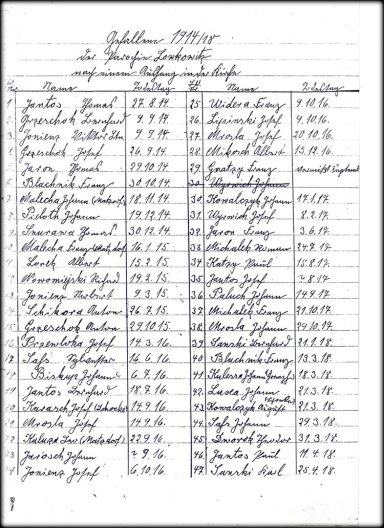 Gefallene 1914/18
der Parochie Lonkowitz
nach einem Aushang in der Kirche
Lfd. Nr. Name Todestag
1 Jantos Thomas 27.8.14.
2 Grzeschok Bernhard 9.9.14.
3 Jonienz Viktor 9.9.14.
4 Grzeschok Josef 26.9.14.
5 Jaron Thomas 29.10.14
6 Blachnik Franz 30.10.14
7 Malecha Johann (Matzdorf) 18.11.14.
8 Johann 19.12.14
9 Thomas 30.12.14
Malecha Franz (Matzdorf) 16.1.15
Albert 15.2.15.
19.2.15.
13 Jonienz Norbert 9.3.15
14 Schikora Anton 26.7.15.
15 Grzeschok Anton 29.10.15
16 Przewloka Josef 14.3.16.
17 Sass Sylvester 16.6.16
18 Biskup Johann 6.7.16
19 Jantos Bernhard 18.7.16
20 Karasch Josef 14.9.16
21 Mrosla Josef 14.9.16.
22 Kaluza (Matzdorf) 22.9.16
23 Jarosch Johann ? 9.16
24 Jonienz Josef 6.10.16
Lfd. Nr. Name Todestag
25 Widera Franz 9.10.16.
26. Lipinski Josef 9.10.16.
27. Mrosla Josef 20.10.16
28. Mikosch Albert 13.12.16.
29. Franz vermißt
30. Wyrwich Johann
30. Kowalczyk Johann 17.1.17.
31. Wyrwich Josef 8.2.17.
32. Jaron Franz 3.6.17.
33. Michalek Roman 24.7.17
34. Paul 15.8.17.
35. Jantos Josef ? 8.17
36. Paluch Johann 14.9.17
37. Michalek Franz 21.10.17
38. Mrosla Johann 29.10.17.
39. Bernhard 21.1.18.
40. Blachnik Franz 13.3.18.
41. Johann 18.3.18.
42. Johann 21.3.18.
43. Kowalczyk August 21.3.18.
44. Sass Johann 29.3.18.
45. Dworok Theodor 31.3.18.
46. Jantos Paul 11.4.18.
47. Karl 25.4.18.